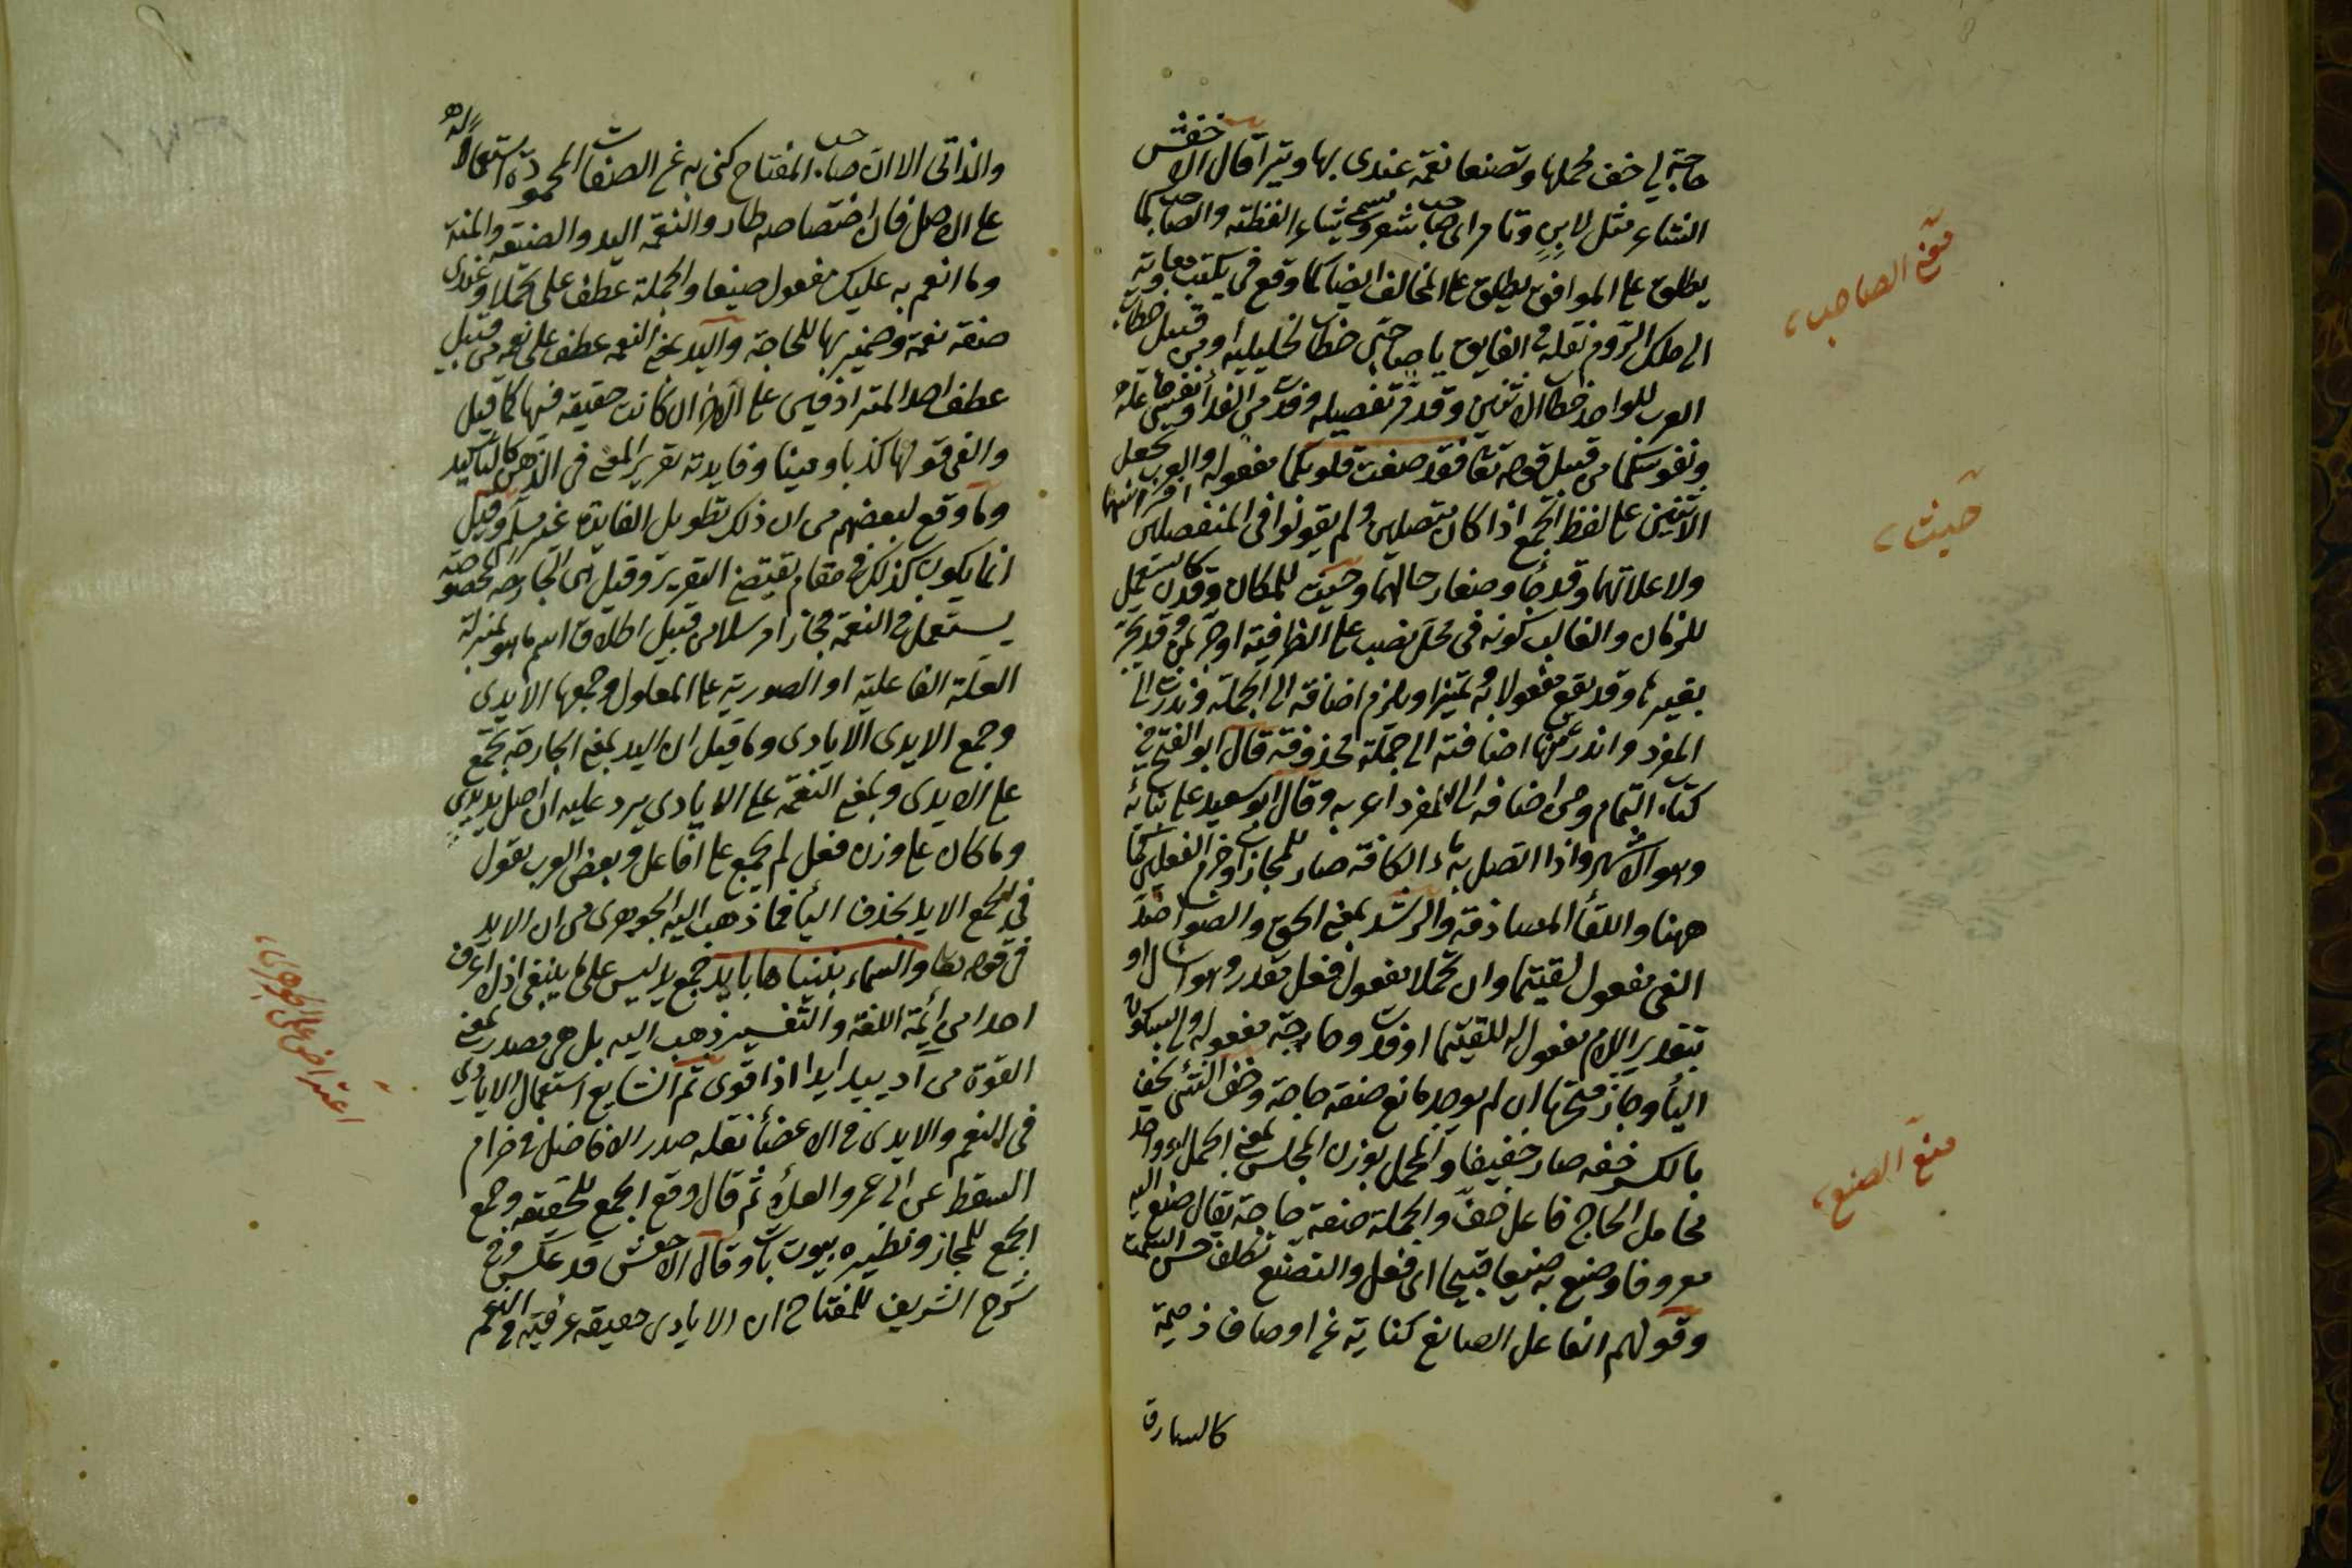 حاجة لي خف محملها وتصنعا نعمة عندي بها ويترا قال الاخفش
الشاعر مثل لابن وتامر اي صاحب شعر وسمي شاعرا لفطنته والصاحب كما
يطلق على الموافق يطلق على المخالف ايضا كما وقع في كتب معاوية
الى ملك الروم نقله في الفايق يا صاحبي خطاب لخليليه او من قبيل خطاب
العرب للواحد خطاب الاثنين وقد مر تفصيله وفدت من الفداء ونفسي فاعله
ونفوسكما من قبيل قوله تعا فقد صغت قلوبكما مفعوله والعرب تجعل
الاثنين على لفظ الجمع اذا كانا متصلين ولم يقولوا في المنفصلين افراسهما
ولا غلمانهما وقد جاء وضعا رحالهما وحيث للمكان وقد يستعمل
للزمان والغالب كونه في محل نصب على الظرفية او جر بمن وقد يجر
بغيرها وقد يقع مفعولا به وتميزا ويلزم اضافته الى الجملة وندرت الى
المفرد واندر منها اضافته الى جملة محذوفة قال ابو الفتح في
كتاب التمام ومن اضافه الى المفرد اعربه وقال ابو سعيد على بنائه
وهو الاشهر واذا اتصل به ما الكافة صار للمجازاة وجزم الفعلين كما
ههنا واللقاء المصادفة والرشد بمعنى الحق والصواب ضد
الغي مفعول لقيتما وان تحملا مفعول فعل مقدر وهو اسال او
بتقدير اللام مفعول له للقيتما او فدت وحاجة مفعوله ولي بسكون
الياء وجاز فتحها ان لم يوجد مانع صفة حاجة وخف الشئ يخف
بالكسر خفة صار خفيفا والمحمل بوزن المجلس بمعنى الحمل او واحد
محامل الحاج فاعل خف والجملة صفة حاجة يقال صنع اليه
معروفا وصنع به صنيعا قبيحا اي فعل والتصنع تكلف حسن السمت
وقولهم الفاعل الصانع كناية عن اوصاف ذميمة
كالسارق
معنى الصاحب
حيث
معنى الصنع
والزاني الا ان صاحب المفتاح كنى به عن الصفات المحمودة استعمالا له
على الاصل فان اختصاصه طار والنعمة اليد والصنيعة والمنة
وما انعم به عليك مفعول صنيعا والجملة عطف على تحملا وعندي
صفة نعمة وضمير بها للحاجة واليد بمعنى النعمة عطف على نعمة من قبيل
عطف احد المترادفين على الاخر ان كانت حقيقة فيها كما قيل
والفى قولها كذبا ومينا وفايدته تقرير المعنى في الذهن كالتاكيد
وما وقع لبعضهم من ان ذلك تطويل لا لفايدة غير مسلم وقيل
انما يكون كذلك في مقام يقتضي التقرير وقيل هي الجارحة المخصوصة
يستعمل في النعمة مجازا مرسلا من قبيل اطلاق اسم ما هو بمنزلة
العلة الفاعلية او الصورية على المعلول وجمعها الايدي
وجمع الايدي الايادي وما قيل ان اليد بمعنى الجارحة تجمع
على الايدي وبمعنى النعمة على الايادي يرد عليه ان اصل يد يدي
وما كان على وزن فعل لم يجمع على افاعل وبعض العرب تقول
في الجمع الايد بحذف الياء فما ذهب اليه الجوهري من ان الايد
في قوله تعا والسماء بنيناها بايد جمع يد ليس على ما ينبغي اذ لا اعرف
احدا من ائمة اللغة والتفسير ذهب اليه بل هي مصدر بمعنى
القوة من آد يييد ايدا اذا قوي ثم الشايع استعمال الايادي
في النعم والايدي في الاعضاء نقله صدر الافاضل في ضرام
السقط عن ابي عمرو العلاء ثم قال وقع الجمع للحقيقة وجمع
الجمع للمجاز ونظيره بيوت بيات وقال الاخفش قد عكس وفي
شرح الشريف للمفتاح ان الايادي حقيقة عرفية في النعم
اعتراض على الجوهري